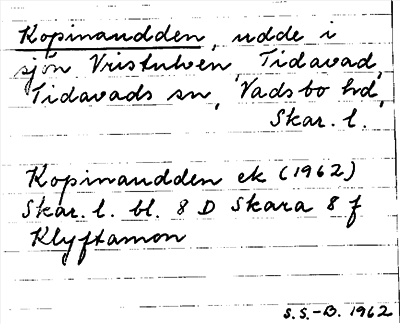 Kopinaudden, udde i
sjön Vristulven Tidavad,
Tidavads sn, Vadsbo hd,
Skar. l.
Kopinaudden ek (1962)
Skar. l. bl. 8 D Skara 8 f
Klyftamon
S.S.-B. 1962